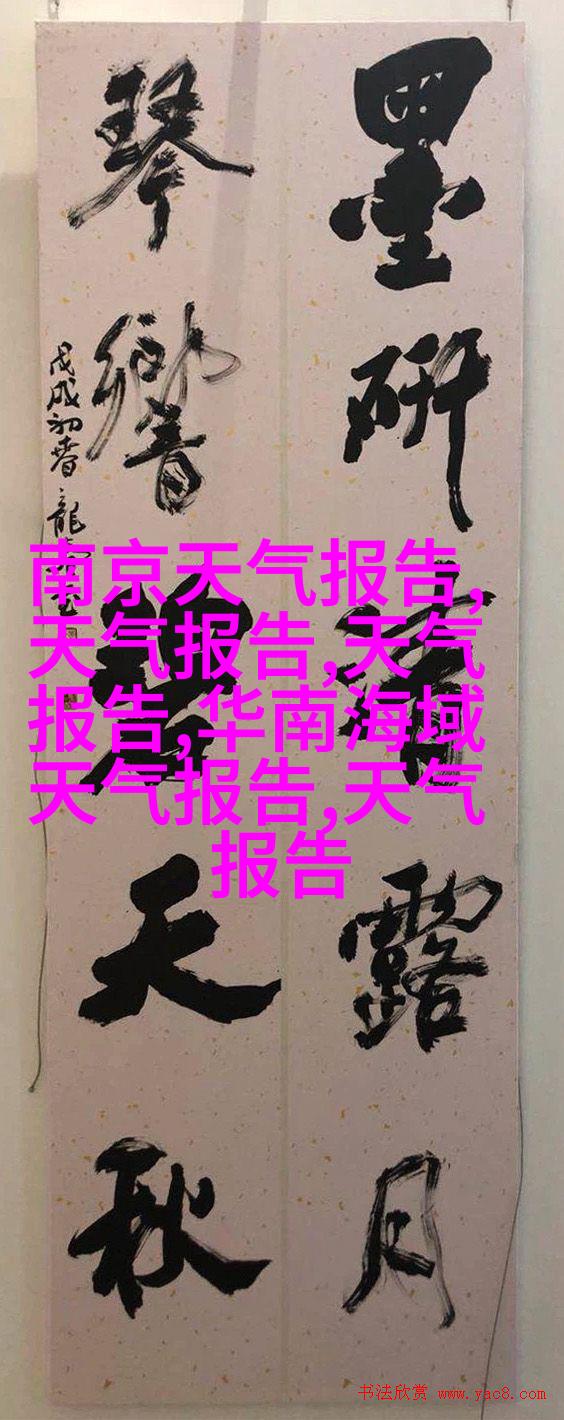 墨研清露月
琴響碧天秋
戊戌初春龍
南京天气报告,
天气报告,天气
报告,华南海域
天气报告,天气
报告
书法欣赏 www.yac8.com